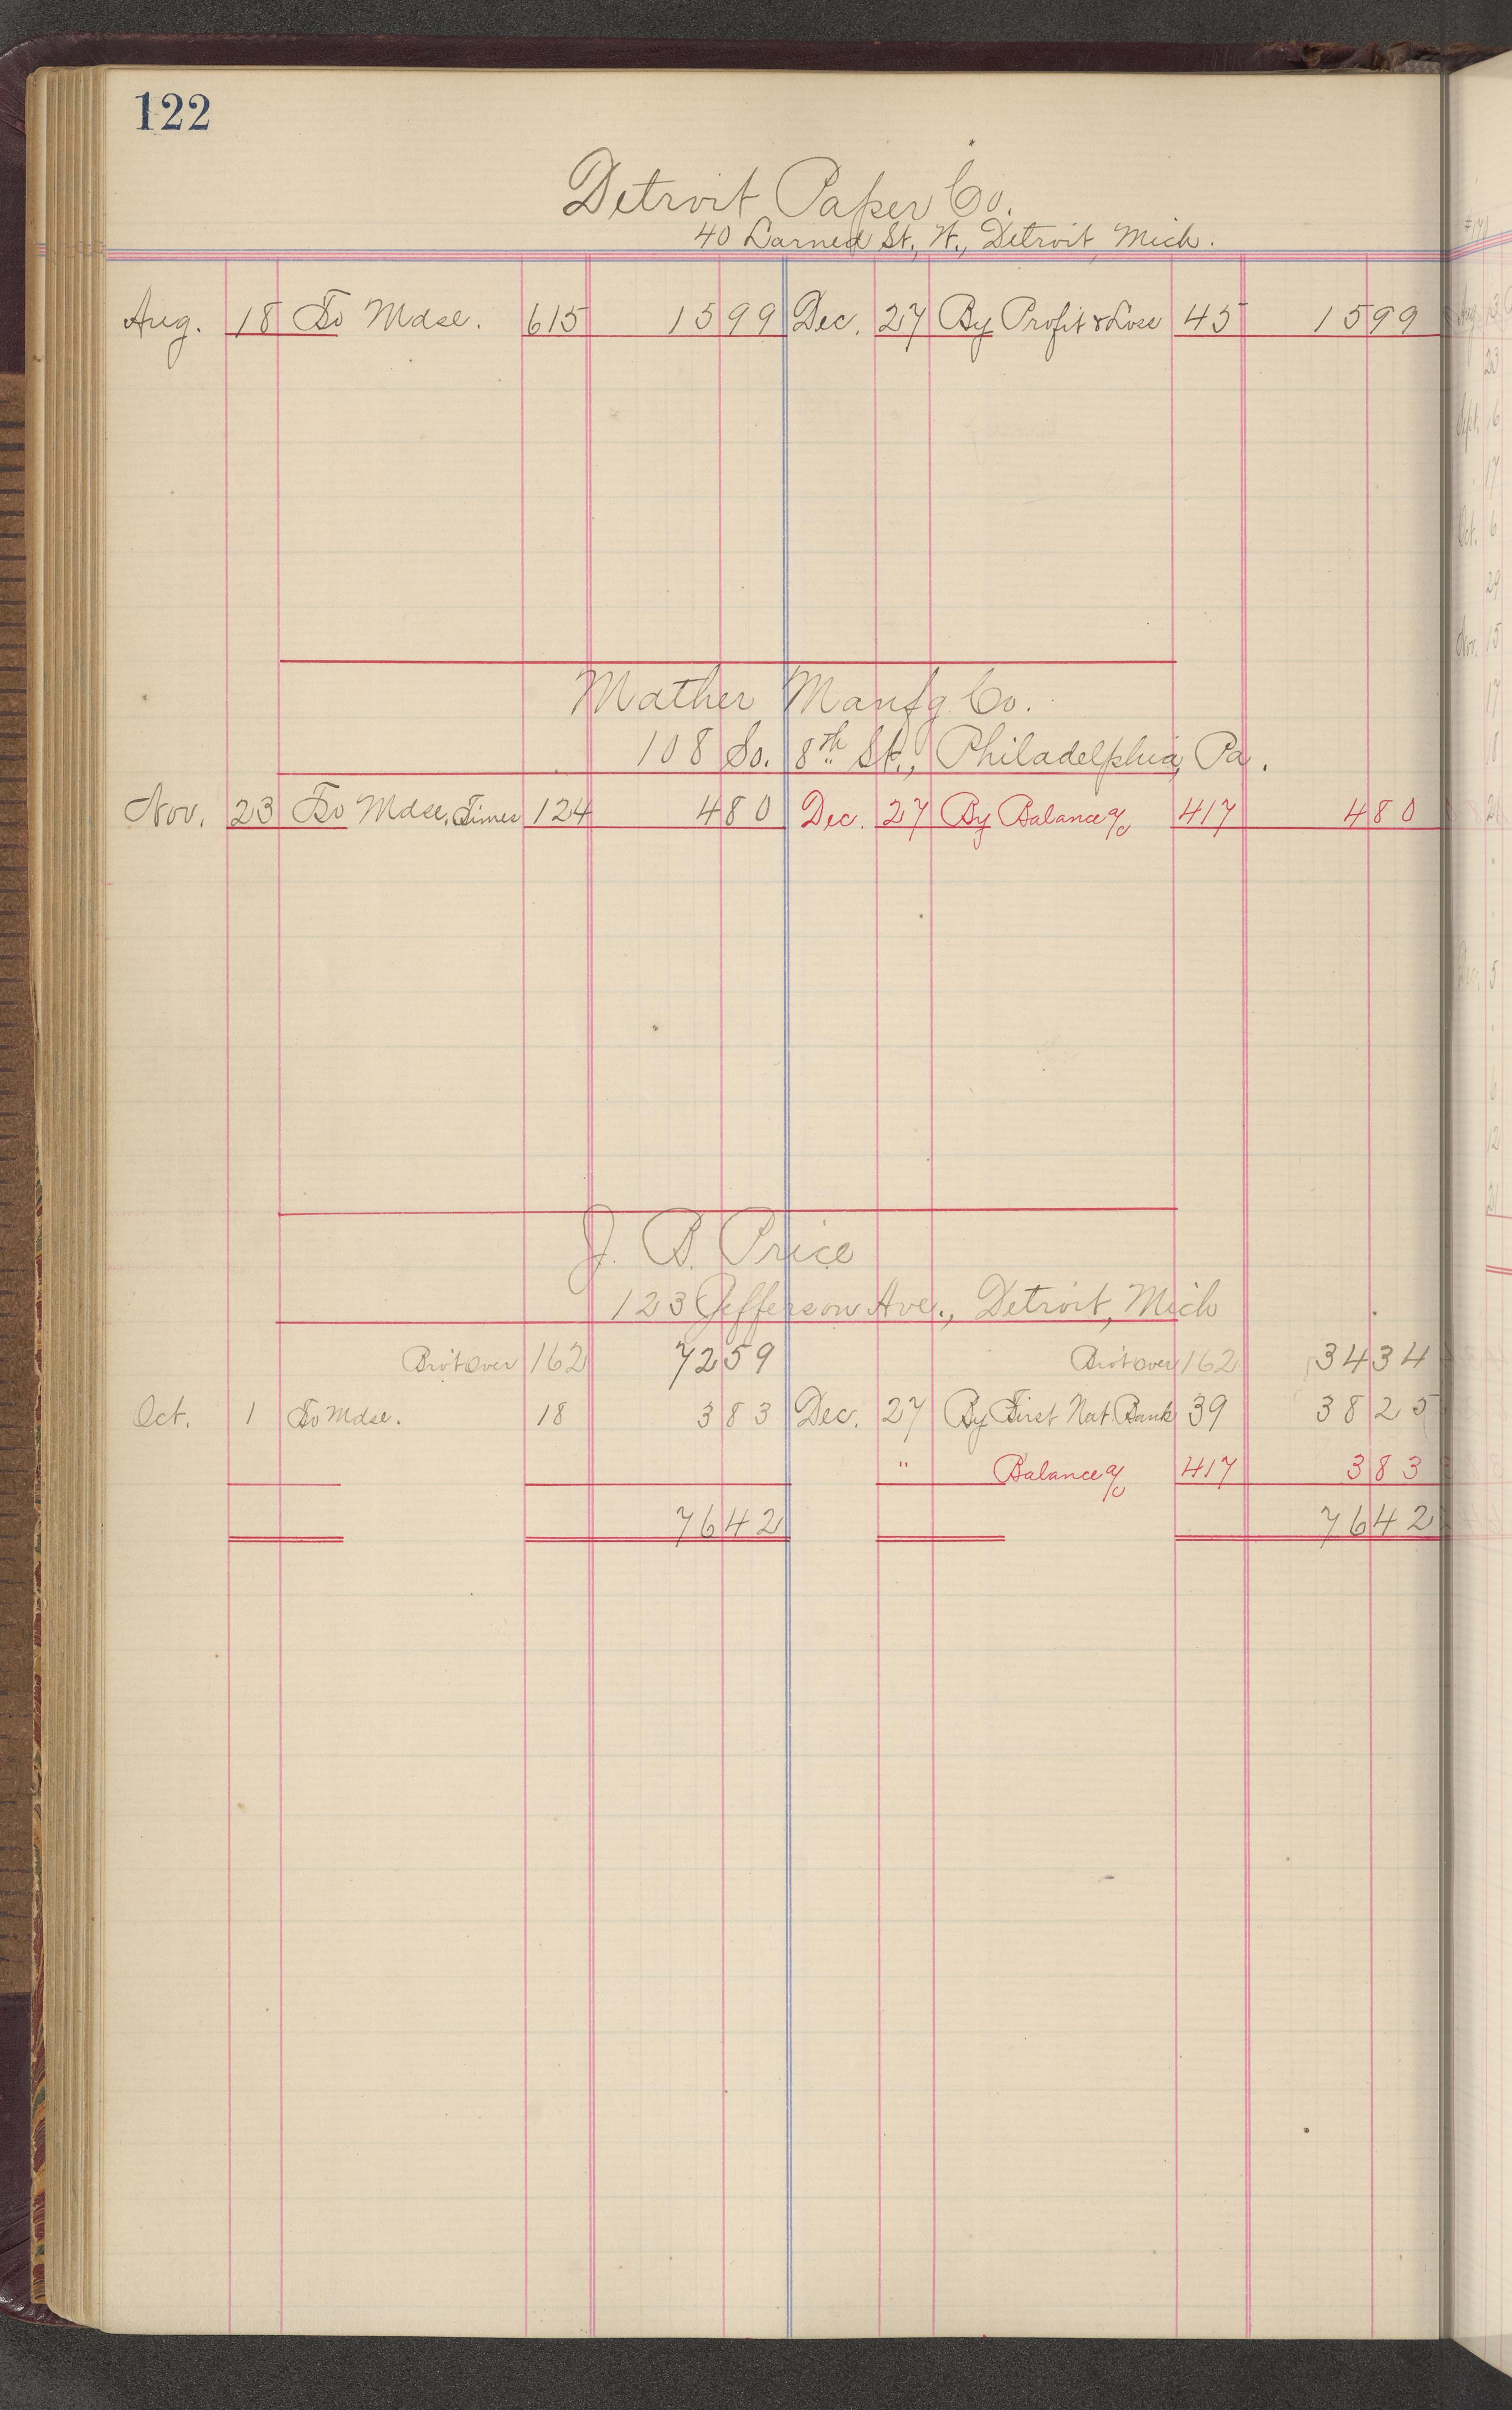 122
Detroit Paper Co.
40 Larned St, W., Detroit, Mich.
Aug. 18 To Mdse. 615 15 99 Dec. 27 By Profit & Loss 45 15 99
Mather Manfg Co.
108 So. 8th St., Philadelphia, Pa.
Nov. 23 To Mdse, Times 124 4 80 Dec. 27 By Balance a/c 417 4 80
J. B. Price
123 Jefferson Ave., Detroit, Mich
Bro't over 162 72 59 Bro't over 162 34 34
Oct. 1 To Mdse. 18 3 83 Dec. 27 By First Nat. Bank 39 38 25
" Balance a/c 417 3 83
76 42 76 42